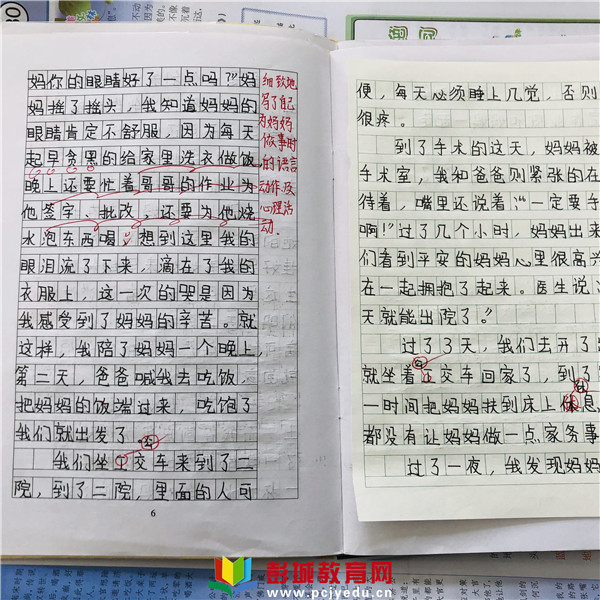 妈你的眼睛好了一点吗?”妈
妈摇了摇头,我知道妈妈的
眼睛肯定不舒服,因为每天
起早贪黑的给家里洗衣做饭
晚上还要忙着哥哥的作业为
他签字、批改,还要为他烧
水泡东西喝。想到这里我的
眼泪流了下来,滴在了我的
衣服上,这一次的哭是因为
我感受到了妈妈的辛苦。就
这样,我陪了妈妈一个晚上,
第二天,爸爸喊我去吃饭,
把妈妈的饭端过来,吃饱了
我们就出发了。
我们坐公交车来到了二
院,到了二院,里面的人可
6
细致地
写了自己
为妈妈
做事时
的语言
动作及
心理活
动.
便,每天必须睡上几觉,否则
很疼。
到了手术的这天,妈妈被
手术室,我和爸爸则紧张的在
待着,嘴里还说着:“一定要手
啊!”过了几个小时,妈妈出来
们看到平安的妈妈心里很高兴
在一起拥抱了起来。医生说
天就能出院了。”
过了3天,我们去开了出
就坐着公交车回家了,到了
一时间把妈妈扶到床上休息,
都没有让妈妈做一点家务事
过了一夜,我发现妈妈
彭城教育网
www.pcjyedu.cn